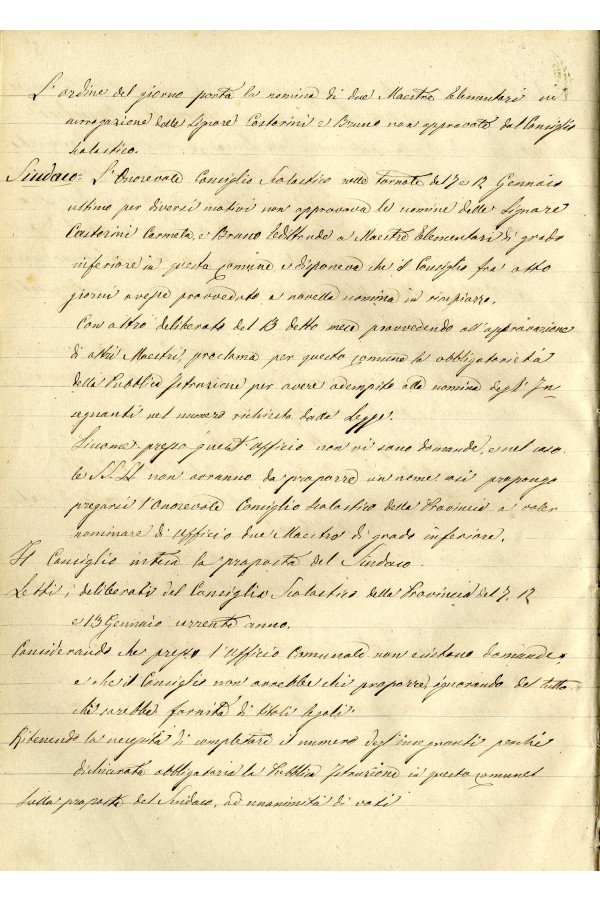 L'ordine del giorno porta la nomina di due Maestre Elementari in
surrogazione delle Signore Castorini e Bruno non approvate dal Consiglio
Scolastico.
Sindaco= L'Onorevole Consiglio Scolastico nelle tornate del 7 e 12 Gennaio
ultimo per diversi motivi non approvava le nomine delle Signore
Castorini Carmela, e Bruno Geltrude a Maestre Elementari di grado
inferiore in questo Comune, e disponeva che il Consiglio fra otto
giorni avesse provveduto a novella nomina in rimpiazzo.
Con altro deliberato del 13 detto mese provvedendo all'approvazione
di altri Maestri, proclama per questo Comune la obbligatorietà
della Pubblica Istruzione per avere adempito alla nomina degl'In=
segnanti nel numero richiesto dalla Legge.
Siccome presso quest'Ufficio non vi sono domande, e nel caso
le SS. LL. non avranno da proporre un nome, così propongo
pregarsi l'Onorevole Consiglio Scolastico della Provincia a voler
nominare di Ufficio due Maestre di grado inferiore.
Il Consiglio intesa la proposta del Sindaco.
Letti i deliberati del Consiglio Scolastico della Provincia del 7, 12
e 13 Gennaio corrente anno.
Considerando che presso l'Ufficio Comunale non esistono domande,
e che il Consiglio non avrebbe chi proporre, ignorando del tutto
chi sarebbe fornita di titoli legali.
Ritenendo la necessità di completare il numero degl'insegnanti perchè
dichiarata obbligatoria la Pubblica Istruzione in questo Comune
Sulla proposta del Sindaco, ad unanimità di voti